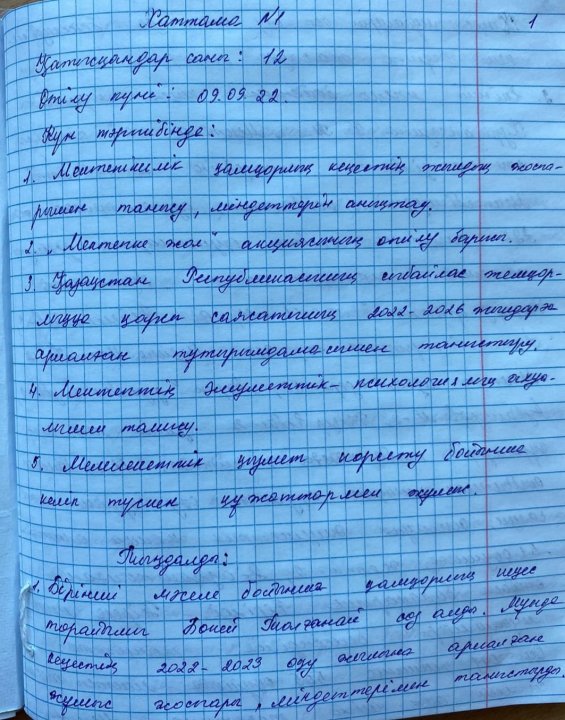 Хаттама №1 1
Қатысқандар саны: 12
Өтілу күні: 09.09.22.
Күн тәртібінде:
1. Мектепішілік қамқорлық кеңестің жылдық жоспа-
рымен танысу, міндеттерін анықтау.
2. "Мектепке жол" акциясының өтілу барысы.
3. Қазақстан Республикасының сыбайлас жемқор-
лыққа қарсы саясатының 2022-2026 жылдарға
арналған тұжырымдамасымен таныстыру.
4. Мектептің әлеуметтік-психологиялық ахуа-
лымен танысу.
5. Мемлекеттік қызмет көрсету бойынша
келіп түскен құжаттармен жұмыс.
Тыңдалды:
1. Бірінші мәселе бойынша қамқорлық кеңес
төрайымы сөз алды. Мұнда
кеңестің 2022-2023 оқу жылына арналған
жұмыс жоспары, міндеттерімен таныстырды.